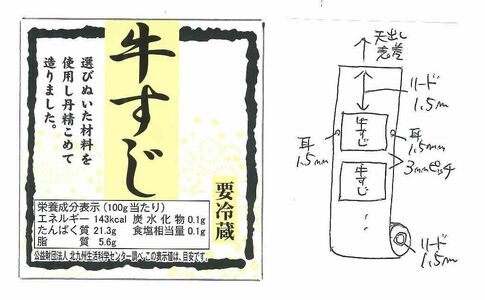 牛すじ
選びぬいた材料を
使用し丹精こめて
造りました。
要冷蔵
栄養成分表示(100g当たり)
エネルギー 143kcal 炭水化物 0.1g
たんぱく質 21.3g 食塩相当量 0.1g
脂質 5.6g
公益財団法人 北九州生活科学センター調べ、この表示値は、目安です。
天出し
リード
1.5m
牛すじ
耳
1.5mm
耳
1.5mm
3mmピッチ
牛すじ
リード
1.5m